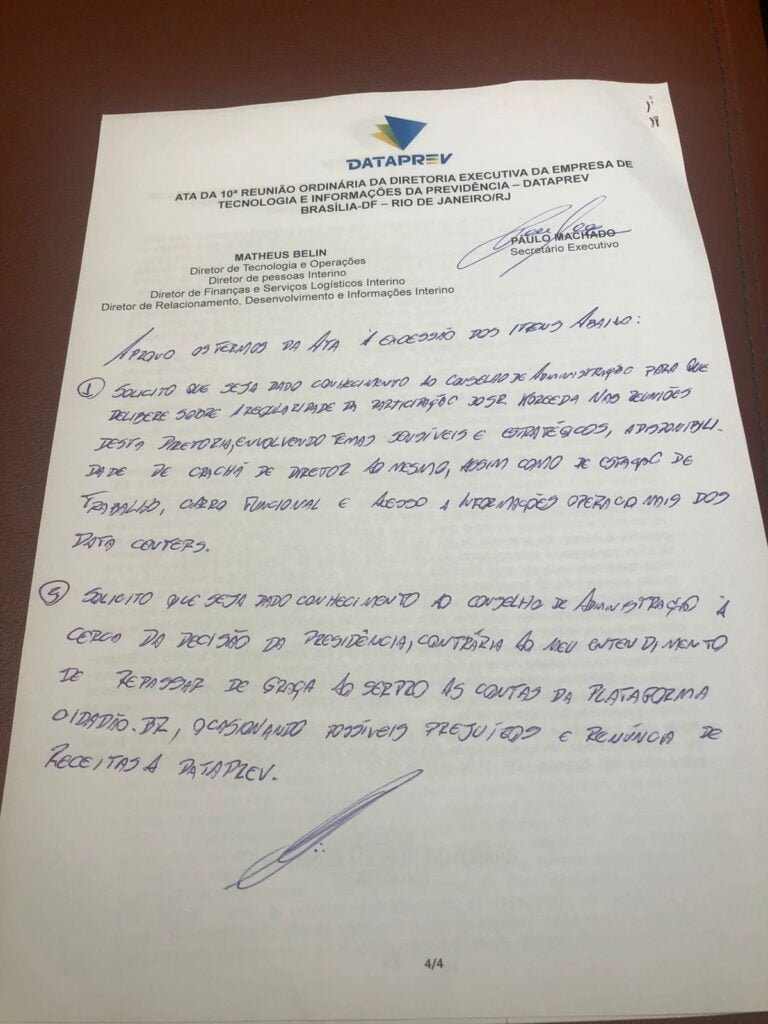 DATAPREV
ATA DA 10ª REUNIÃO ORDINÁRIA DA DIRETORIA EXECUTIVA DA EMPRESA DE
TECNOLOGIA E INFORMAÇÕES DA PREVIDÊNCIA – DATAPREV
BRASÍLIA-DF – RIO DE JANEIRO/RJ
PAULO MACHADO
Secretário Executivo
MATHEUS BELIN
Diretor de Tecnologia e Operações
Diretor de pessoas Interino
Diretor de Finanças e Serviços Logísticos Interino
Diretor de Relacionamento, Desenvolvimento e Informações Interino
APROVO OS TERMOS DA ATA À EXCESSÃO DOS ITENS ABAIXO:
1 SOLICITO QUE SEJA DADO CONHECIMENTO AO CONSELHO DE ADMINISTRAÇÃO PARA QUE
DELIBERE SOBRE A REGULARIDADE DA PARTICIPAÇÃO DO SR. NAS REUNIÕES
DESTA DIRETORIA, ENVOLVENDO TEMAS SENSÍVEIS E ESTRATÉGICOS, A DISPONIBILI-
DADE DE CRACHÁ DE DIRETOR AO MESMO, ASSIM COMO DE ESTAÇÃO DE
TRABALHO, CARRO FUNCIONAL E ACESSO A INFORMAÇÕES OPERACIONAIS DOS
DATA CENTERS.
5 SOLICITO QUE SEJA DADO CONHECIMENTO AO CONSELHO DE ADMINISTRAÇÃO À
CERCA DA DECISÃO DA PRESIDÊNCIA, CONTRÁRIA AO MEU ENTENDIMENTO
DE REPASSAR DE GRAÇA AO SERPRO AS CONTAS DA PLATAFORMA
CIDADÃO.BR, OCASIONANDO POSSÍVEIS PREJUÍZOS E RENÚNCIA DE
RECEITAS À DATAPREV.
4/4